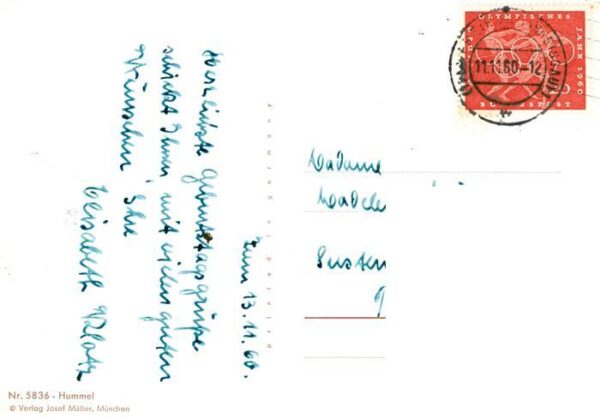 zum 13.11.60.
Herzlichste Geburtstagsgrüsse
schickt Ihnen mit vielen guten
Wünschen Ihre
Elisabeth
Madame
Susten
OLYMPISCHES
JAHR 1960
BUNDESPOST
11.11.60-12
Nr. 5836 - Hummel
© Verlag Josef Müller, München